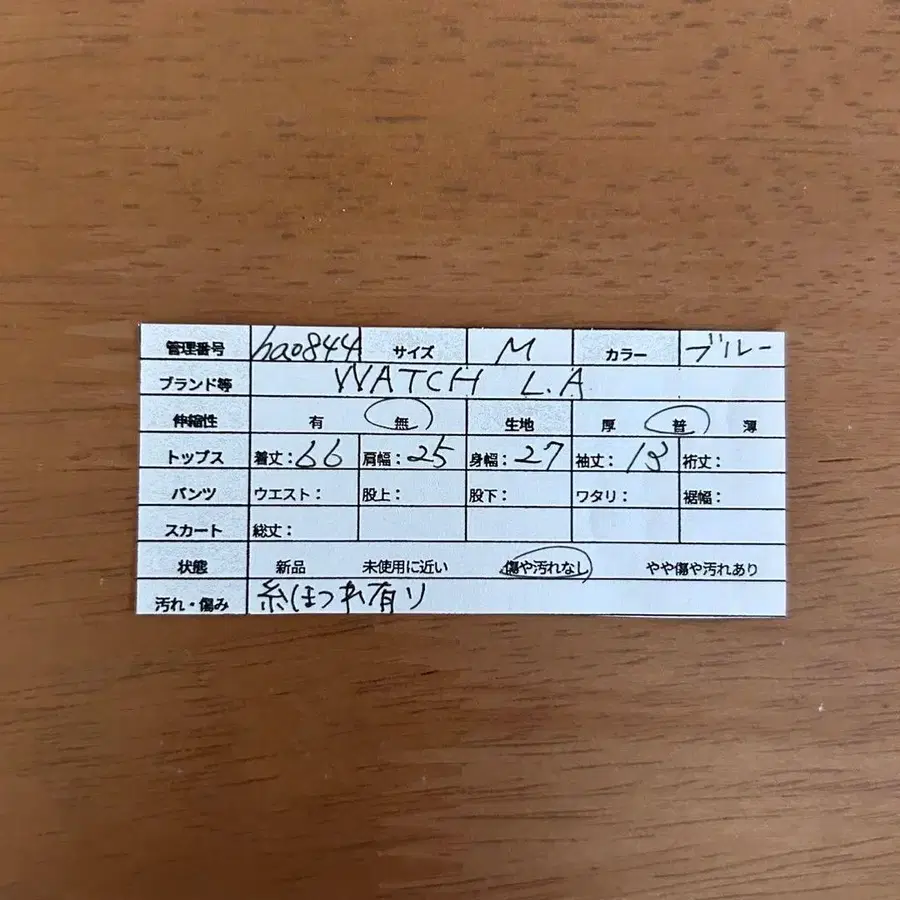 管理番号 hao844 サイズ M カラー ブルー
ブランド等 WATCH L.A
伸縮性 有 無 生地 厚 普 薄
トップス 着丈：66 肩幅：25 身幅：27 袖丈：13 裄丈：
パンツ ウエスト： 股上： 股下： ワタリ： 裾幅：
スカート 総丈：
状態 新品 未使用に近い 傷や汚れなし やや傷や汚れあり
汚れ・傷み 糸ほつれ有り